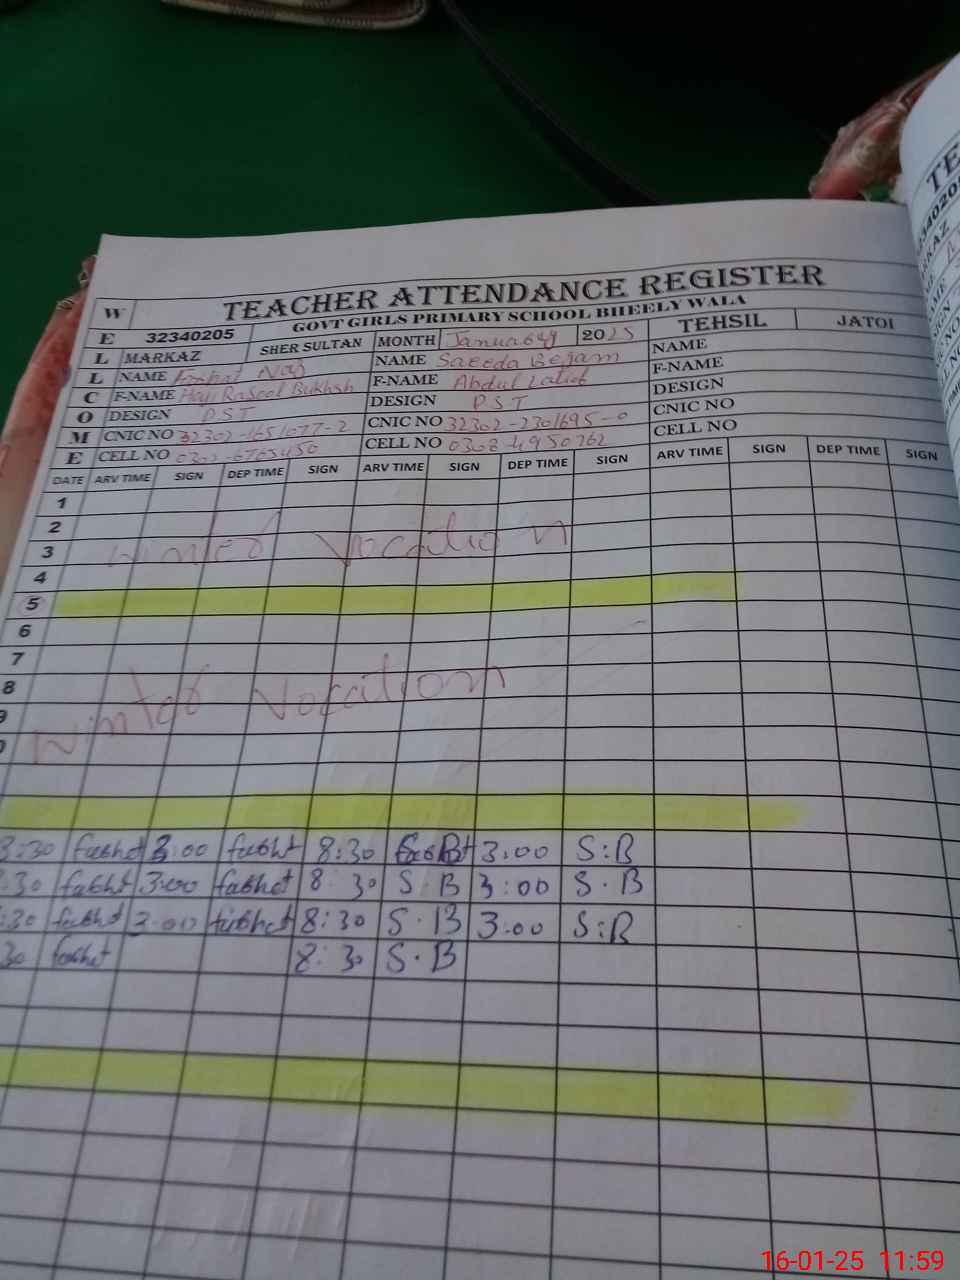 W TEACHER ATTENDANCE REGISTER
E 32340205 GOVT GIRLS PRIMARY SCHOOL BHEELY WALA
L MARKAZ SHER SULTAN MONTH January 2025 TEHSIL JATOI
L NAME NAME Saeeda Begam NAME
C F-NAME Haji Rasool Bukhsh F-NAME Abdul Latief F-NAME
O DESIGN PST DESIGN PST DESIGN
M CNIC NO 32302-1651077-2 CNIC NO 32302-2301695-0 CNIC NO
E CELL NO CELL NO 0308-4950762 CELL NO
DATE ARV TIME SIGN DEP TIME SIGN ARV TIME SIGN DEP TIME SIGN ARV TIME SIGN DEP TIME SIGN
1
2
3 winter Vocation
4
5
6
7
8
9 winter Vocation
0
:30 3:00 8:30 3:00 S:B
:30 3:00 8:30 S.B 3:00 S.B
:30 3:00 8:30 S.B 3:00 S:B
30 8:30 S.B
16-01-25 11:59